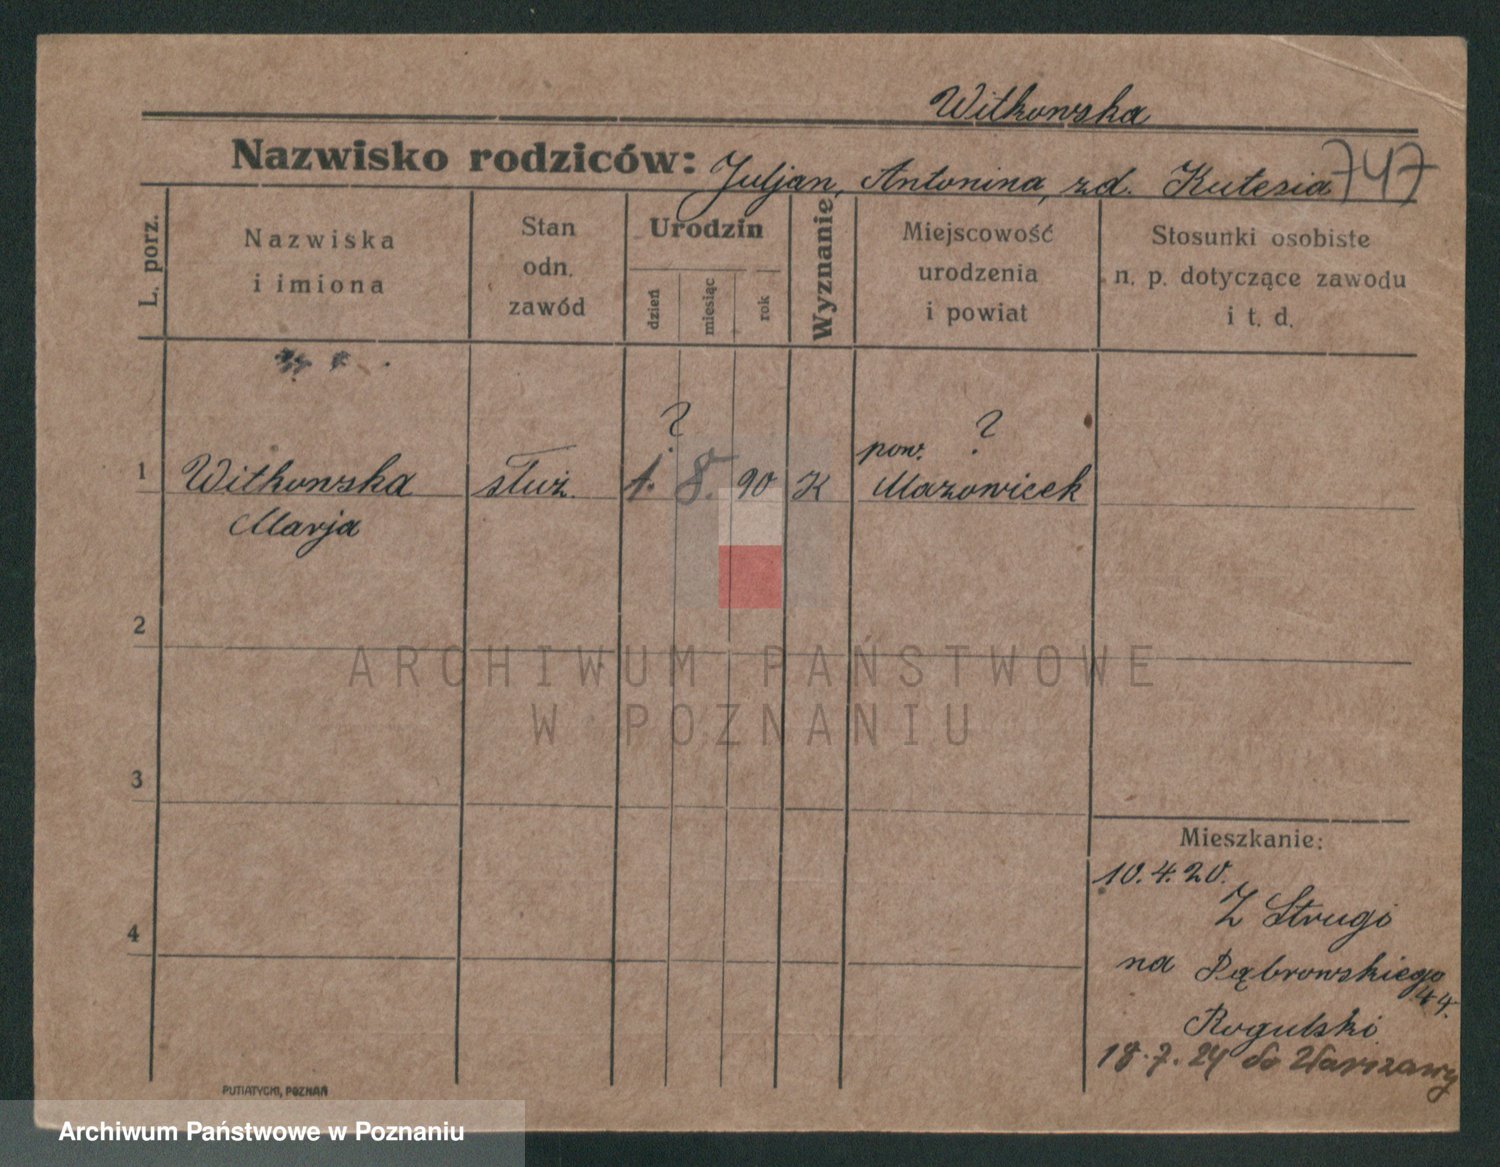 Witkowska
Nazwisko rodziców: Juljan, Antonina, zd. Kutesia 747
L. porz.
Nazwiska
i imiona
Stan
odn.
zawód
Urodzin
dzień
miesiąc
rok
Wyznanie
Miejscowość
urodzenia
i powiat
Stosunki osobiste
n. p. dotyczące zawodu
i t. d.
? ?
pow.
1 Witkowska służ. 1. 8. 90 K Mazowieck
Marja
2
ARCHIWUM PAŃSTWOWE
W POZNANIU
3
Mieszkanie:
10.4.20.
Z Strugi
4
na Dąbrowskiego
44.
Rogulski
18.7.24 do Warszawy
PUTIATYCKI, POZNAŃ
Archiwum Państwowe w Poznaniu